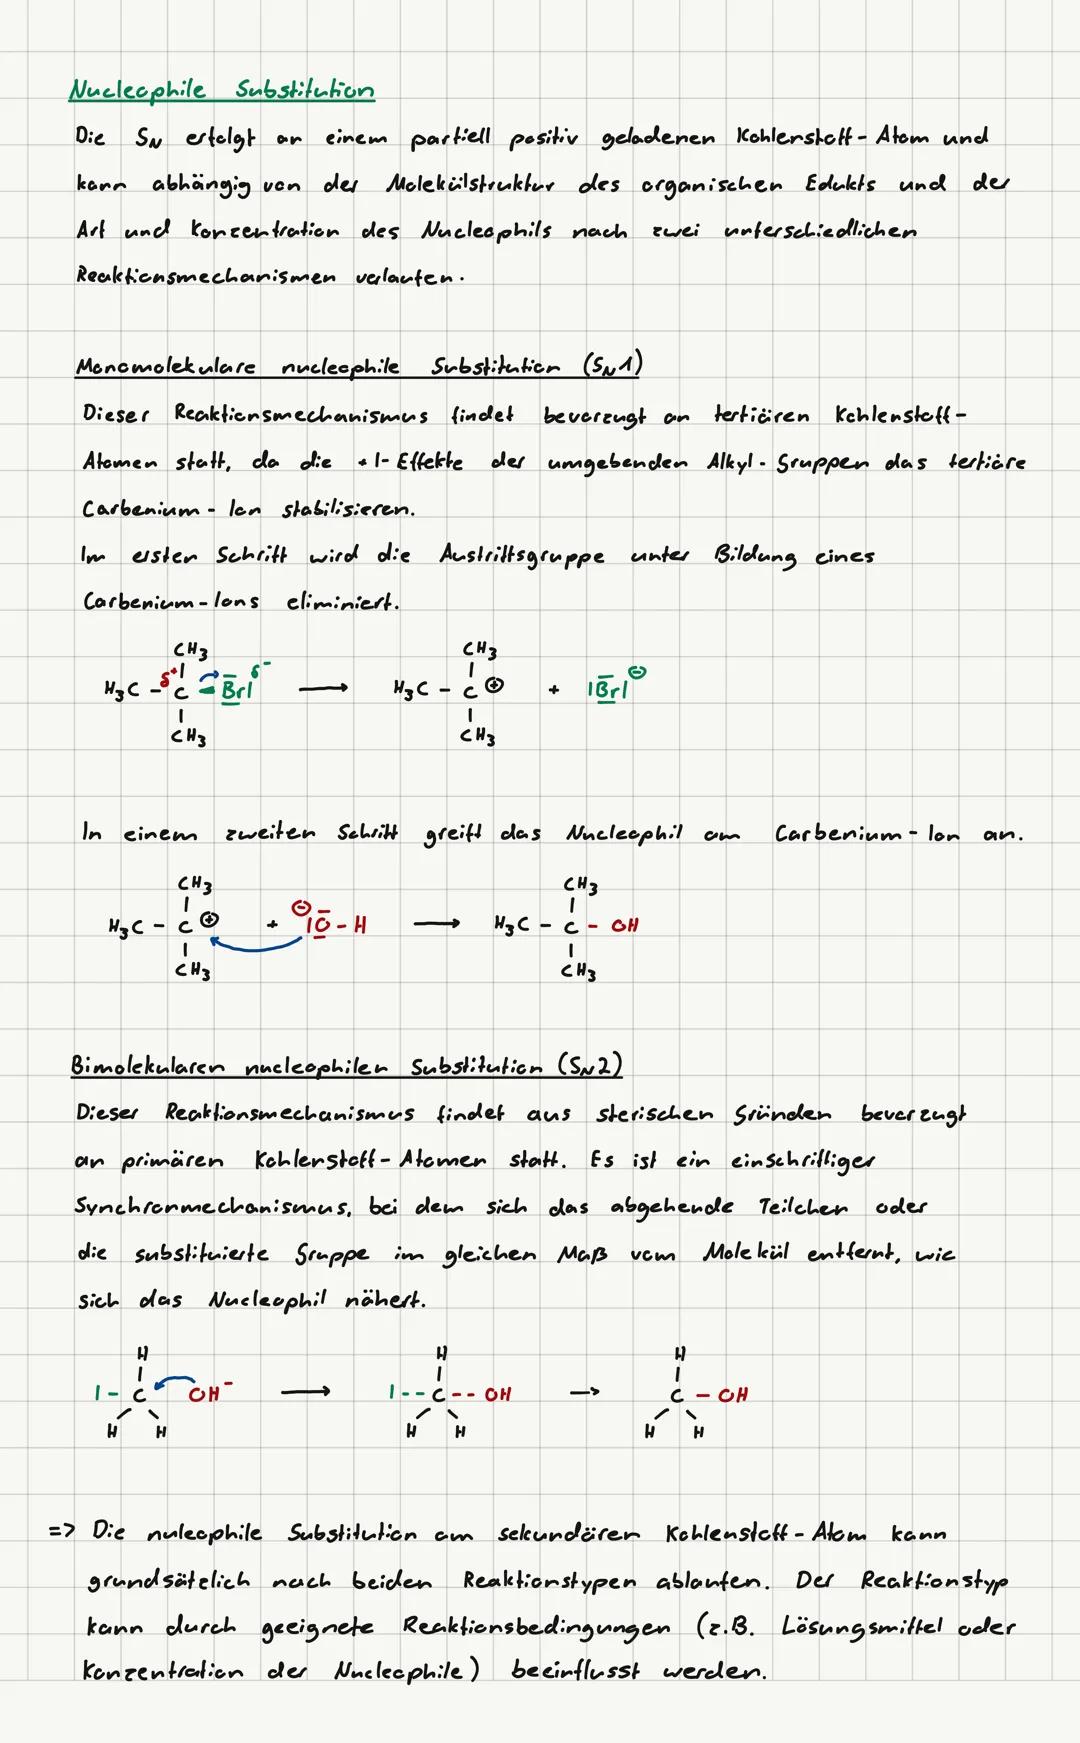 Nucleophile Substitution
Die SN erfolgt an einem partiell positiv geladenen Kohlenstoff-Atom und
kann abhängig von der Molekülstruktur des organischen Edukts und der
Art und Konzentration des Nucleophils nach zwei unterschiedlichen
Reaktionsmechanismen verlaufen.
Monomolekulare nucleophile Substitution (SN1)
Dieser Reaktionsmechanismus findet bevorzugt an tertiären Kohlenstoff-
Atomen statt, da die +I-Effekte der umgebenden Alkyl-Gruppen das tertiäre
Carbenium-Ion stabilisieren.
Im ersten Schritt wird die Austrittsgruppe unter Bildung eines
Carbenium-Ions eliminiert.
CH3 CH3
H3C - C δ+ Br δ- → H3C - C ⊕ + |Br| ⊖
CH3 CH3
In einem zweiten Schritt greift das Nucleophil am Carbenium-Ion an.
CH3 CH3
H3C - C ⊕ + ⊖ |O - H → H3C - C - OH
CH3 CH3
Bimolekularen nucleophilen Substitution (SN2)
Dieser Reaktionsmechanismus findet aus sterischen Gründen bevorzugt
an primären Kohlenstoff-Atomen statt. Es ist ein einschrittiger
Synchronmechanismus, bei dem sich das abgehende Teilchen oder
die substituierte Gruppe im gleichen Maß vom Molekül entfernt, wie
sich das Nucleophil nähert.
H H H
I - C OH- → I -- C -- OH → C - OH
H H H H H H
=> Die nuleophile Substitution am sekundären Kohlenstoff-Atom kann
grundsätzlich nach beiden Reaktionstypen ablaufen. Der Reaktionstyp
kann durch geeignete Reaktionsbedingungen (z.B. Lösungsmittel oder
Konzentration der Nucleophile) beeinflusst werden.